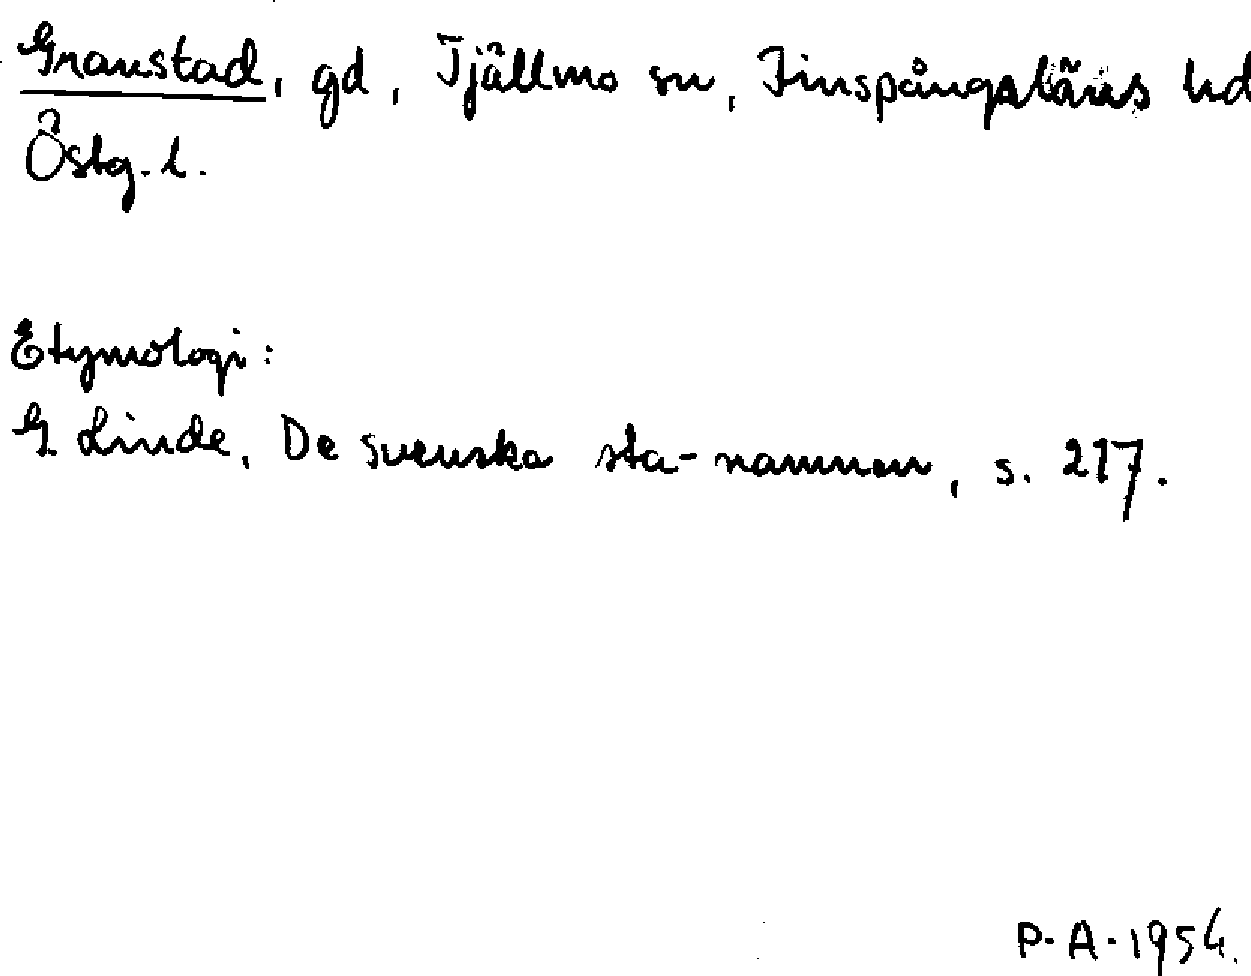 Granstad, gd, Tjällmo sn, Finspångaläns hd
Östg. l.
Etymologi:
G. Linde, De svenska sta-namnen, s. 217.
P. A. 1954.